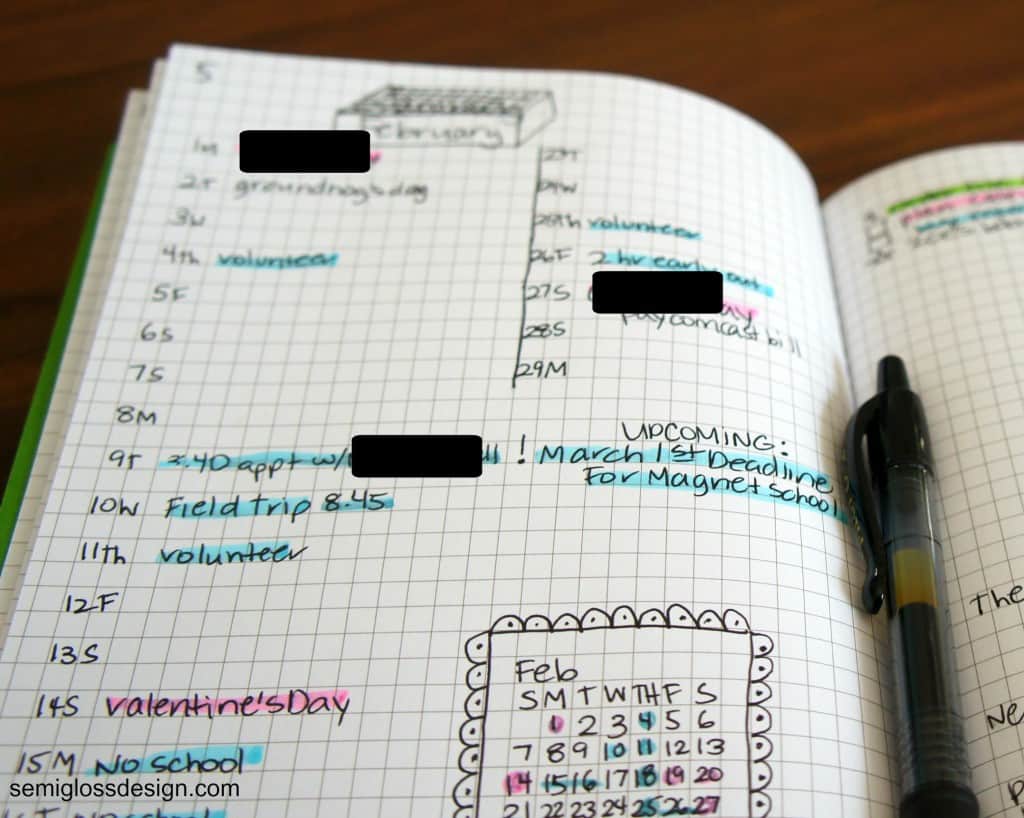 5
February
1M
2T groundhogs day
3W
4th volunteer
5F
6S
7S
8M
9T 2.40 appt w/
10W Field trip 8.45
11th volunteer
12F
13S
14S valentine'sDay
15M No school
25th volunteer
26F 2 hr early out
27S ay
pay comcast bill
28S
29M
UPCOMING:
! March 1st Deadline
For Magnet School
Feb
S M T W TH F S
1 2 3 4 5 6
7 8 9 10 11 12 13
14 15 16 17 18 19 20
21 22 23 24 25 26 27
The
Ne
semiglossdesign.com